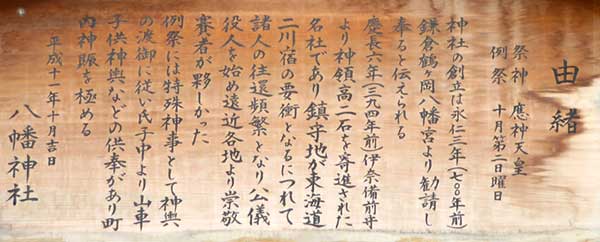 由緒
祭神 應神天皇
例祭 十月第二日曜日
神社の創立は永仁三年(七〇〇年前)
鎌倉鶴ヶ岡八幡宮より勧請し
奉ると伝えられる
慶長六年(三九四年前)伊奈備前守
より神領高二石を寄進された
名社であり 鎮守地が東海道
二川宿の要衝となるにつれて
諸人の往還頻繁となり公儀
役人を始め遠近各地より崇敬
寄者が夥しかった
例祭には特殊神事として神輿
の渡御に従い氏子中より山車
子供神輿などの供奉があり町
内神賑を極める
平成十一年十月吉日
八幡神社